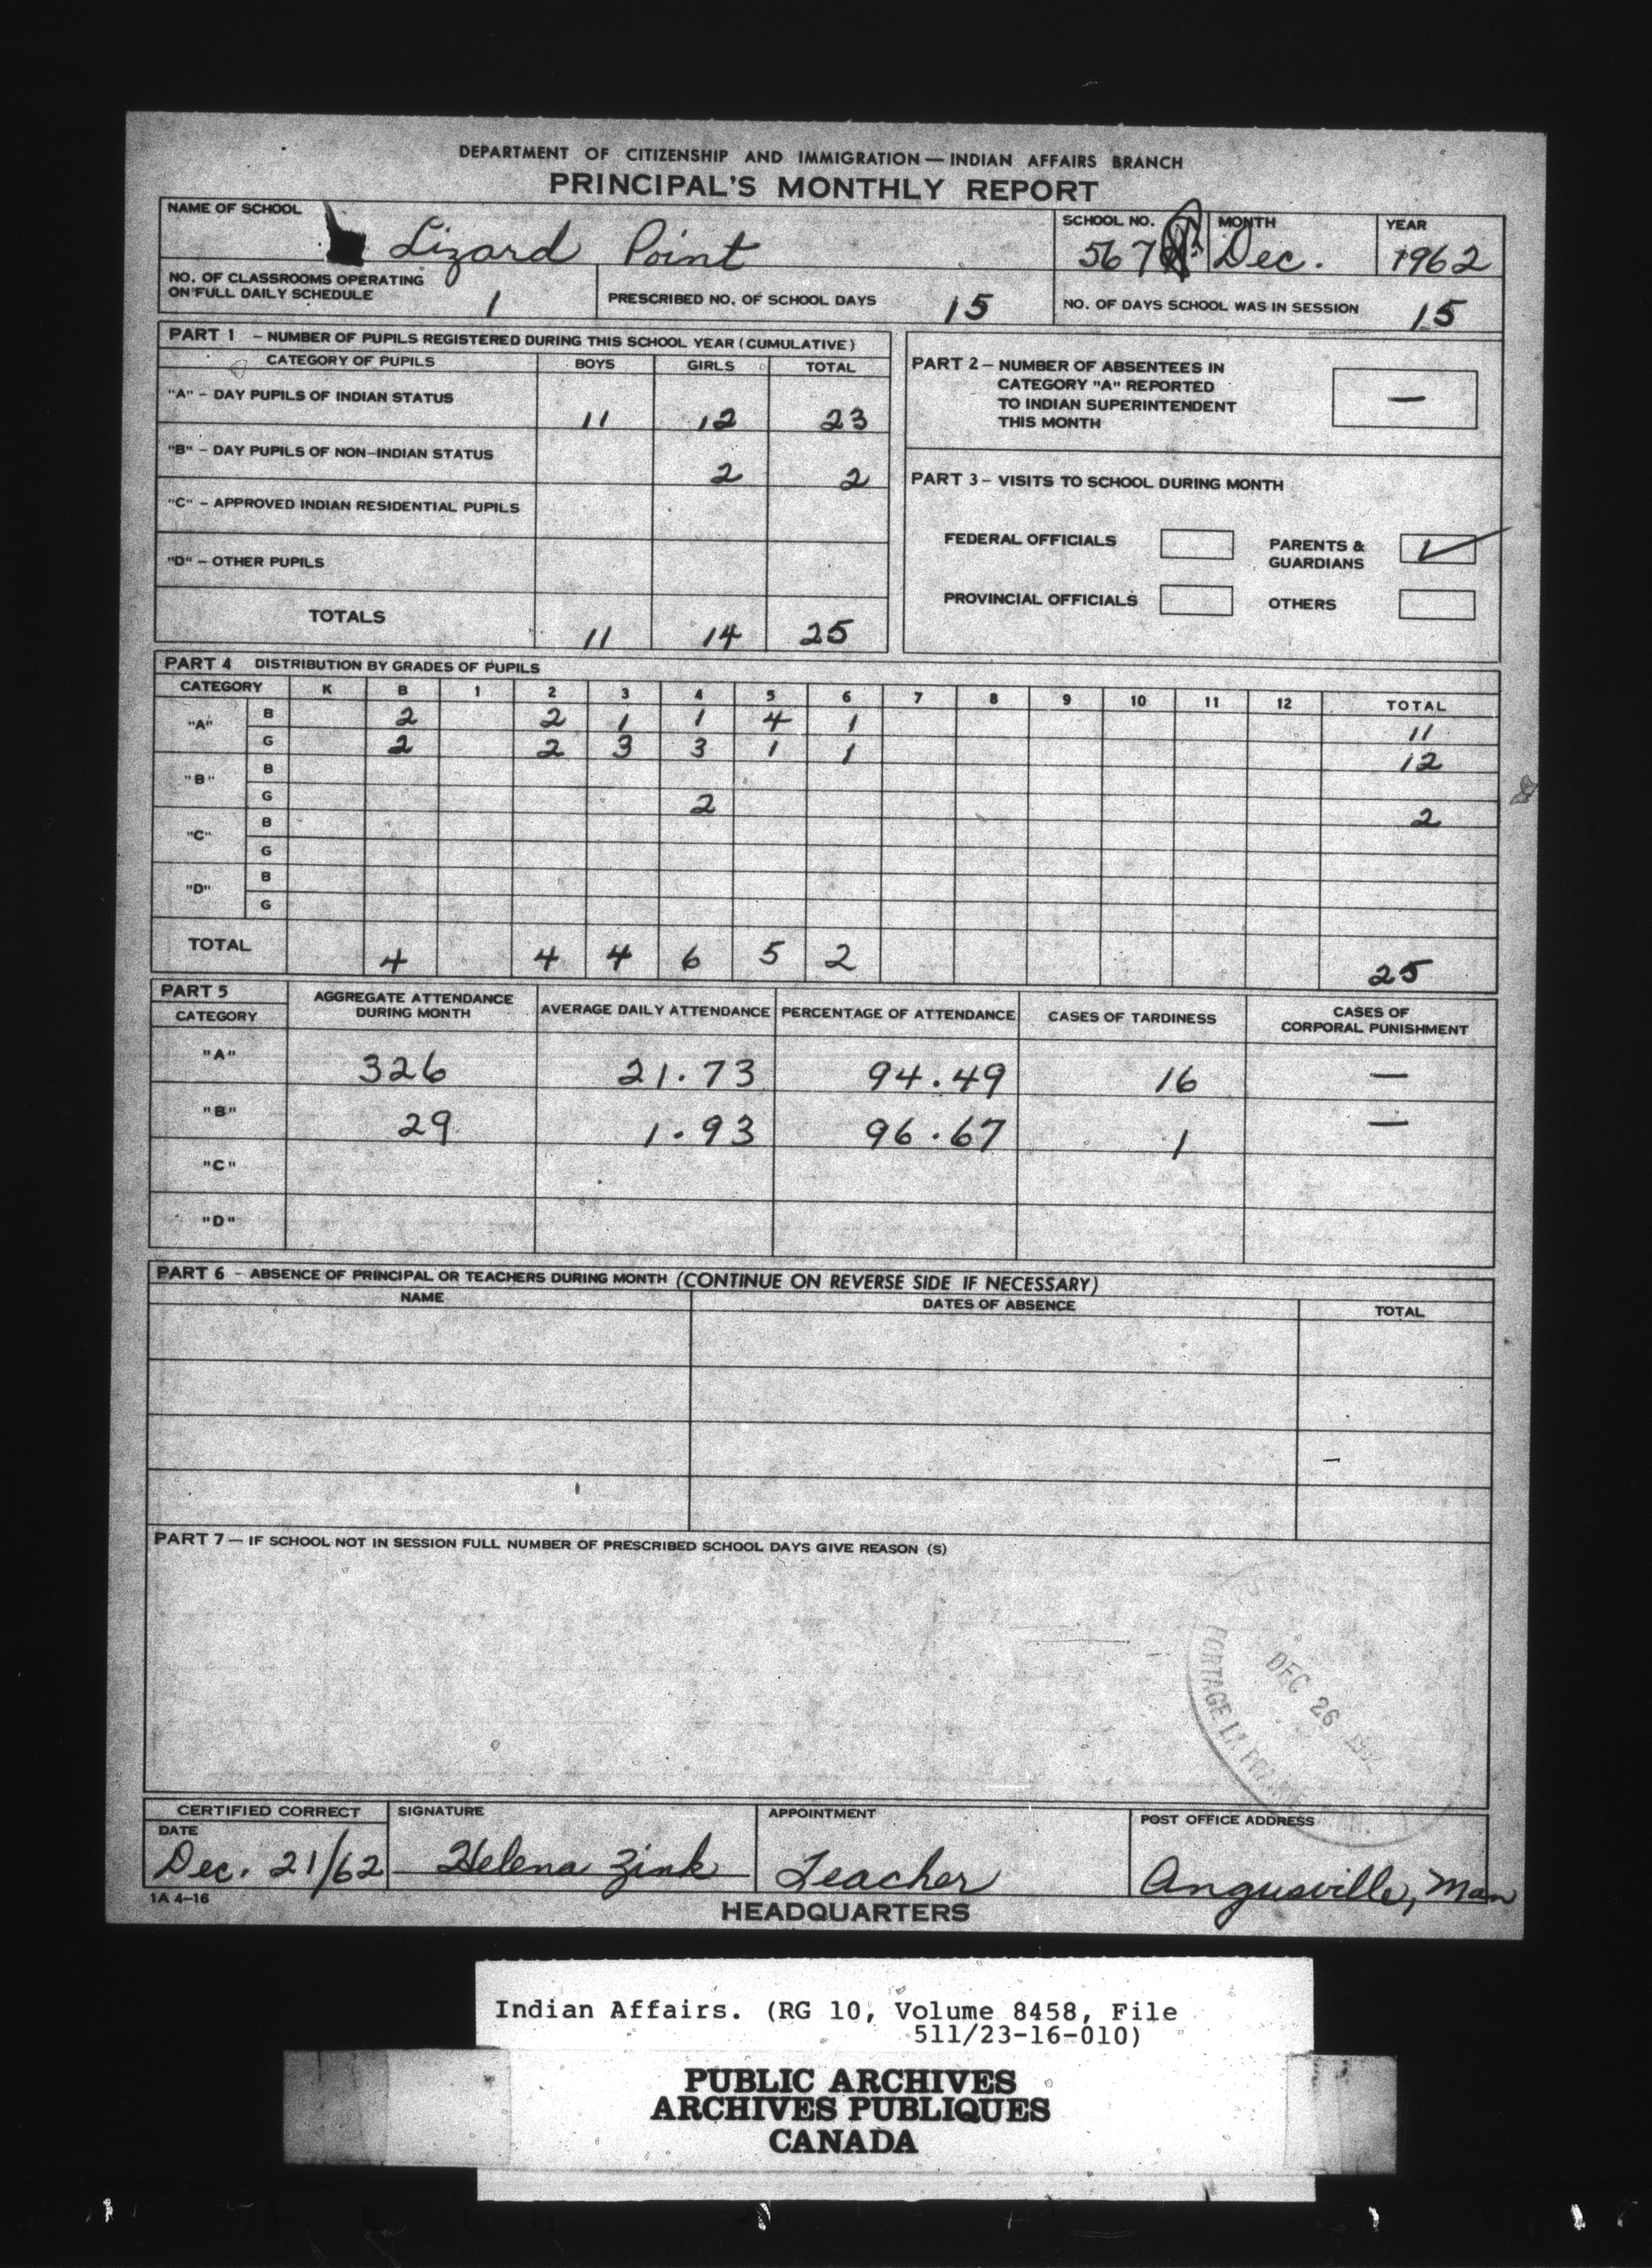 DEPARTMENT OF CITIZENSHIP AND IMMIGRATION — INDIAN AFFAIRS BRANCH
PRINCIPAL'S MONTHLY REPORT
NAME OF SCHOOL Lizard Point
SCHOOL NO. 567
MONTH Dec.
YEAR 1962
NO. OF CLASSROOMS OPERATING
ON FULL DAILY SCHEDULE 1
PRESCRIBED NO. OF SCHOOL DAYS 15
NO. OF DAYS SCHOOL WAS IN SESSION 15
PART 1 – NUMBER OF PUPILS REGISTERED DURING THIS SCHOOL YEAR (CUMULATIVE)
CATEGORY OF PUPILS BOYS GIRLS TOTAL
"A" – DAY PUPILS OF INDIAN STATUS 11 12 23
"B" – DAY PUPILS OF NON-INDIAN STATUS 2 2
"C" – APPROVED INDIAN RESIDENTIAL PUPILS
"D" – OTHER PUPILS
TOTALS 11 14 25
PART 2 – NUMBER OF ABSENTEES IN
CATEGORY "A" REPORTED
TO INDIAN SUPERINTENDENT
THIS MONTH —
PART 3 – VISITS TO SCHOOL DURING MONTH
FEDERAL OFFICIALS
PARENTS &
GUARDIANS ✓
PROVINCIAL OFFICIALS
OTHERS
PART 4 DISTRIBUTION BY GRADES OF PUPILS
CATEGORY K B 1 2 3 4 5 6 7 8 9 10 11 12 TOTAL
"A" B 2 2 1 1 4 1 11
G 2 2 3 3 1 1 12
"B" B
G 2 2
"C" B
G
"D" B
G
TOTAL 4 4 4 6 5 2 25
PART 5
CATEGORY
AGGREGATE ATTENDANCE
DURING MONTH
AVERAGE DAILY ATTENDANCE
PERCENTAGE OF ATTENDANCE
CASES OF TARDINESS
CASES OF
CORPORAL PUNISHMENT
"A" 326 21.73 94.49 16 —
"B" 29 1.93 96.67 1 —
"C"
"D"
PART 6 – ABSENCE OF PRINCIPAL OR TEACHERS DURING MONTH (CONTINUE ON REVERSE SIDE IF NECESSARY)
NAME DATES OF ABSENCE TOTAL
PART 7 — IF SCHOOL NOT IN SESSION FULL NUMBER OF PRESCRIBED SCHOOL DAYS GIVE REASON (S)
DEC 26
PORTAGE LA
CERTIFIED CORRECT
DATE
Dec. 21/62
SIGNATURE
Helena Zink
APPOINTMENT
Teacher
POST OFFICE ADDRESS
Angusville, Man
1A 4-16
HEADQUARTERS
Indian Affairs. (RG 10, Volume 8458, File
511/23-16-010)
PUBLIC ARCHIVES
ARCHIVES PUBLIQUES
CANADA